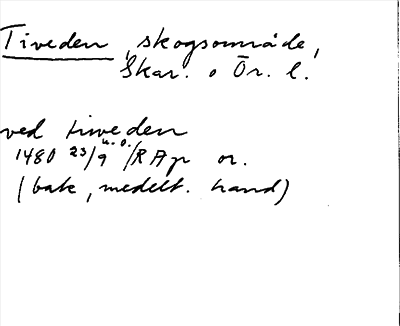 Tiveden, skogsområde,
Skar. o Ör. l.
ved tiweden
1480 23/9 u.o. /RAp or.
(bak, medelt. hand)